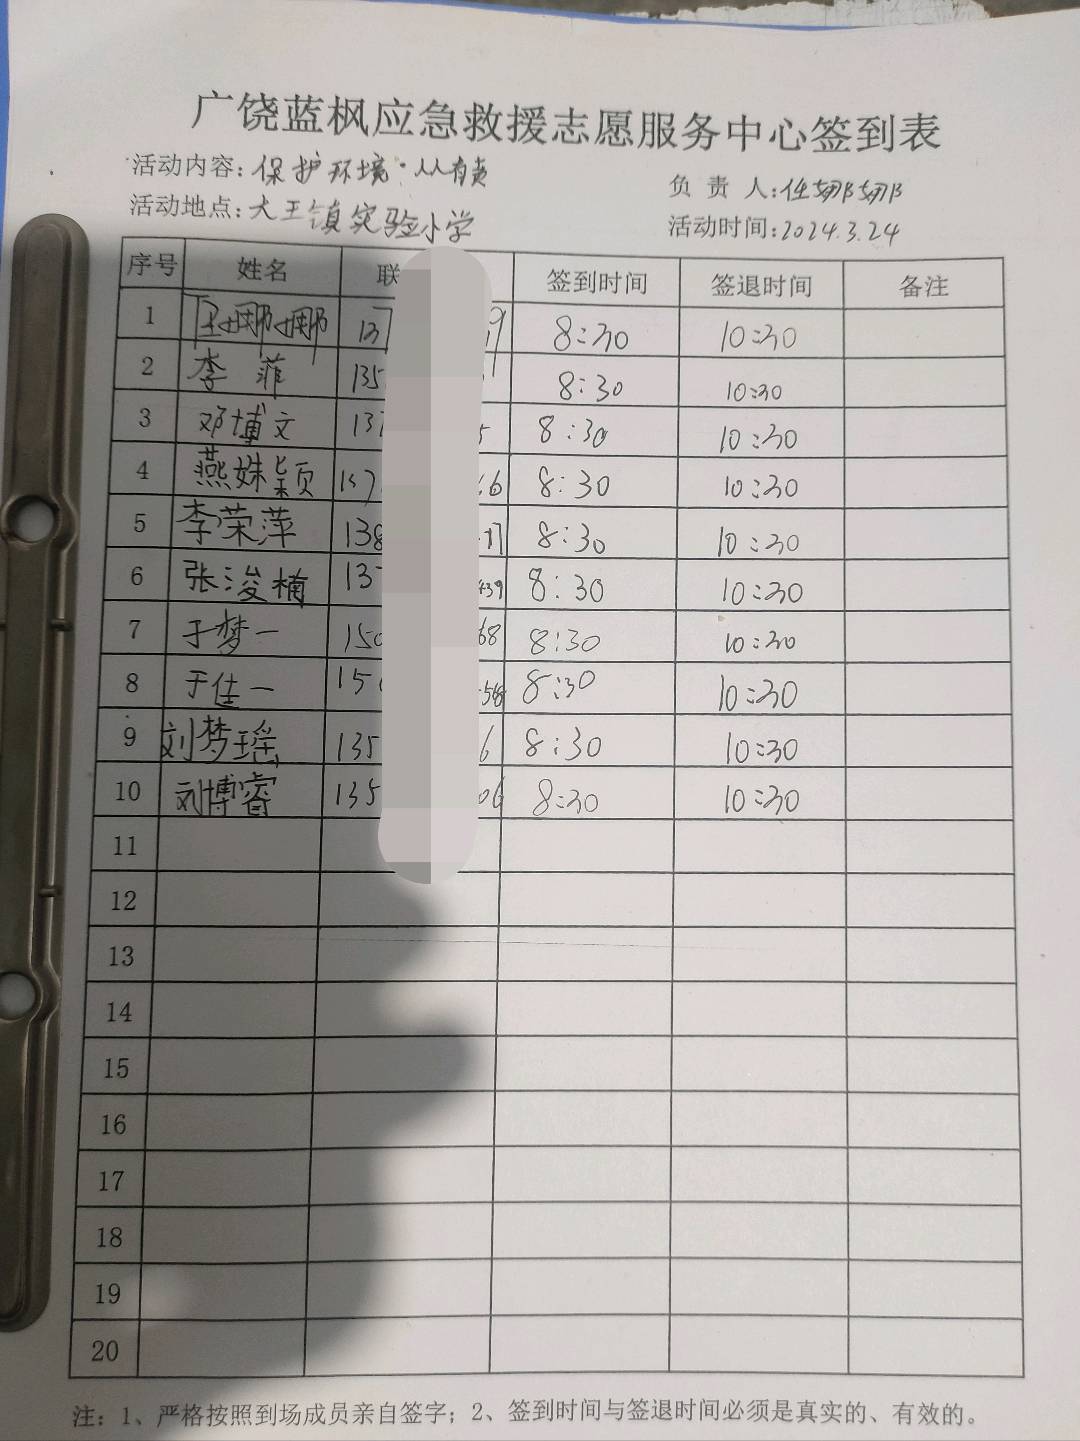 广饶蓝枫应急救援志愿服务中心签到表
活动内容:保护环境·人人有责 负责人:任娜娜
活动地点:大王镇实验小学 活动时间:2024.3.24
序号 姓名 联 签到时间 签退时间 备注
1 任娜娜 137 9 8:30 10:30
2 李菲 135 8:30 10:30
3 邓博文 137 5 8:30 10:30
4 燕姝颖 157 66 8:30 10:30
5 李荣萍 138 17 8:30 10:30
6 张浚楠 137 439 8:30 10:30
7 于梦一 150 68 8:30 10:30
8 于佳一 150 58 8:30 10:30
9 刘梦瑶 135 6 8:30 10:30
10 刘博睿 135 06 8:30 10:30
11
12
13
14
15
16
17
18
19
20
注:1、严格按照到场成员亲自签字;2、签到时间与签退时间必须是真实的、有效的。